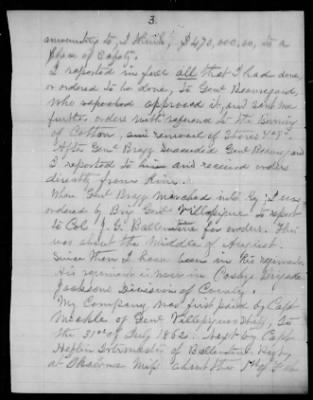 3.
amounting to, I think, $470,000.00, to a
place of Safety.
I reported in full all that I had done,
or ordered to be done, to Genl Beauregard,
who approved it, and sent me
further orders with reference to the Burning
of Cotton, and removal of Stores &c.
After Genl Bragg succeeded Genl Beauregard
I reported to him and received orders
directly from him.
When Genl Bragg marched into Ky, I was
ordered by Brig Genl Villepigue to report
to Col. J. G. Ballentine for orders. This
was about the Middle of August.
Since then I have been in his regiment.
His regiment is now in Cosbys Brigade
Jacksons Division of Cavalry.
My Company was first paid by Capt
Mickle of Genl Villepigues Staff, to
the 31st of July 1862: Next by Capt
Heflin Qr Master of Ballentines Regt,
at Okalona Miss about the 1st of Feb